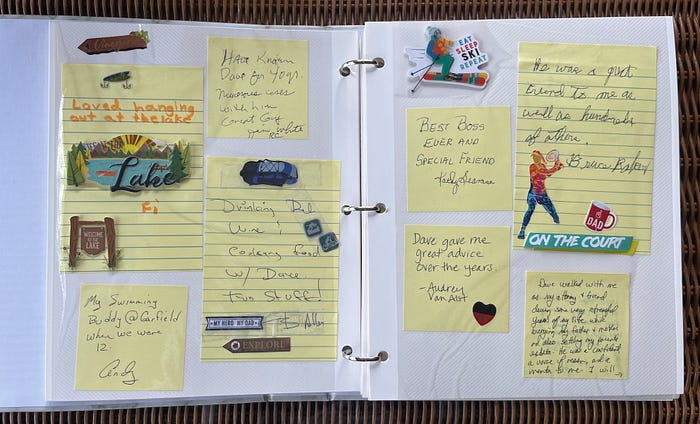 Loved hanging
out at the lake
Lake
WELCOME
TO THE
LAKE
My Swimming
Buddy @ Garfield
when we were
12.
Andy
Have Known
Dave for 40 yrs.
Numerous uses
with him
Great Guy
Jim White
Drinking Red
Wine &
Cooking food
w/ Dave
Fun Stuff!
B Allen
MY HERO MY DAD
EXPLORE
EAT
SLEEP
SKI
REPEAT
BEST BOSS
EVER AND
SPECIAL FRIEND
Dave gave me
great advice
over the years.
-Audrey
Van Alst
He was a great
friend to me as
well as hundreds
of others.
Bruce
#1
DAD
ON THE COURT
Dave walked with me
as my attorney & friend
during some very stressful
years of my life while
burying my father & mother
and also settling my parents'
estate. He was a confidant,
a voice of reason, and a
mentor to me. I will →